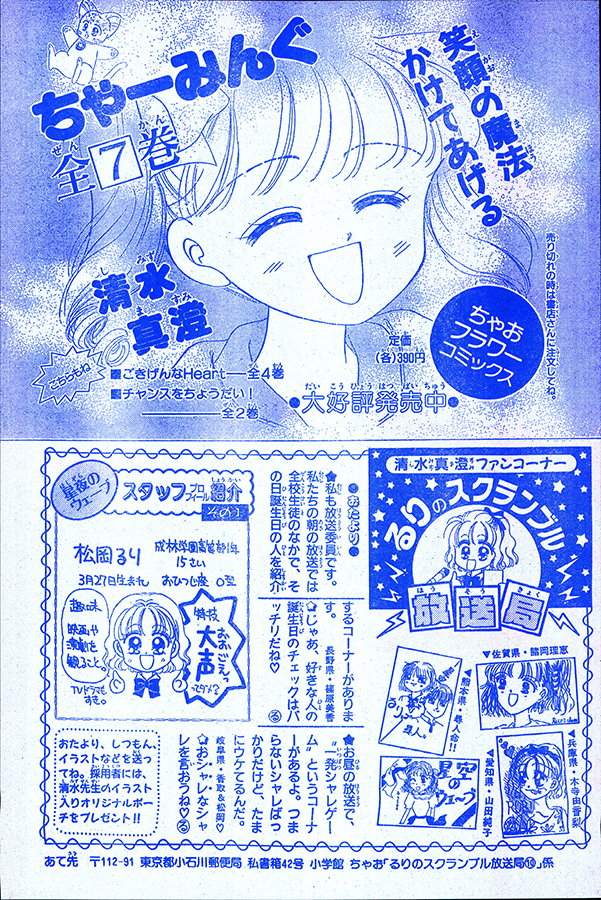 笑顔の魔法
かけてあげる
ちゃーみんぐ
全7巻
清水
真澄
こちらもね!
■ごきげんなHeart―全4巻
■チャンスをちょうだい!
―全2巻
定価
(各)390円
●大好評発売中●
ちゃお
フラワー
コミックス
売り切れの時は書店さんに注文してね。
清水真澄ファンコーナー
るりのスクランブル
放送局
●おたより●
✿私も放送委員です。
私たちの朝の放送では
全校生徒のなかで、そ
の日誕生日の人を紹介
するコーナーがありま
す。 長野県・篠原美香
✿じゃあ、好きな人の
誕生日のチェックはバ
ッチリだね♡ る
✿お昼の放送で、
“一発シャレゲー
ム”というコーナ
ーがあるよ。つま
らないシャレばっ
かりだけど、たま
にウケてるんだ。
岐阜県・香取&松岡♡
✿おシャレなシャ
レを言おうね♡ る
星夜の
ウェーブ
スタッフプロフィール紹介
その1
松岡るり
成林学園高等部1年
15さい
3月27日生まれ
おひつじ座 O型
趣味
映画や
演劇を
観ること。
TVドラマも
すき。
特技
大声
おおごえっ
▼佐賀県・諸岡理恵
▼熊本県・尋人命!!
尋人。
◀兵庫県・木寺由香梨
◀愛知県・山田純子
星空
のウェーブ
おたより、しつもん、
イラストなどを送っ
てね。採用者には、
清水先生のイラスト
入りオリジナルポー
チをプレゼント!!
あて先 〒112-91 東京都小石川郵便局 私書箱42号 小学館 ちゃお「るりのスクランブル放送局⑩」係